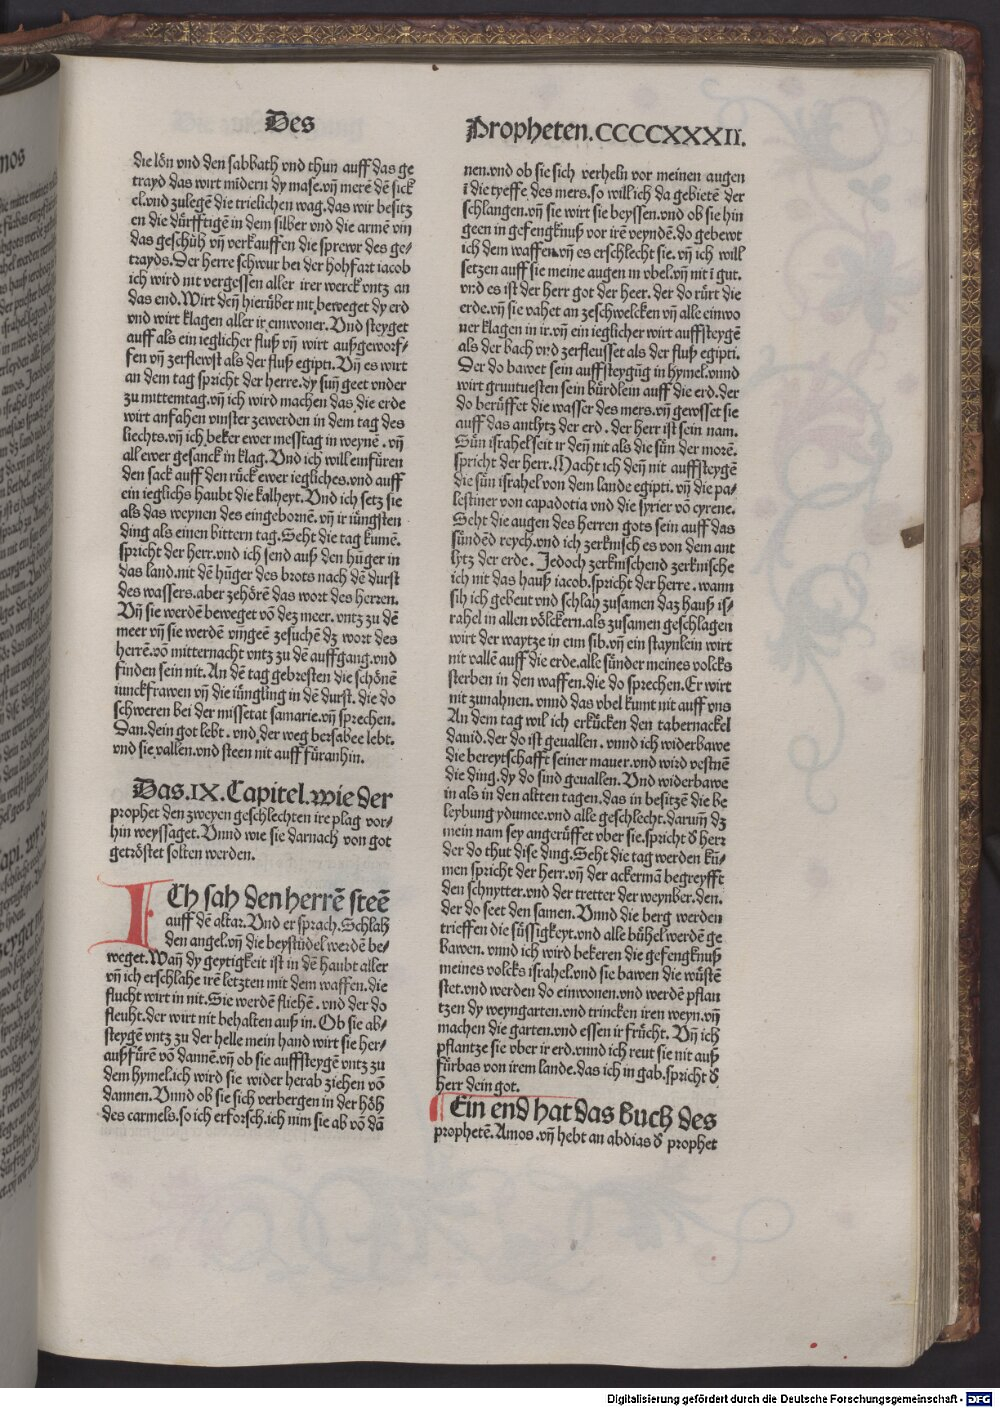 Des
die lön vnd den sabbath vnd thun auff das ge
trayd das wirt mīdern dy mase.vn̄ merē dē sick
el.vnd zulegē die trielichen wag.das wir besitz
en die dürfftigē in dem silber vnd die armē vm
das geschüh vn̄ verkauffen die sprewr des ge-
trayds.Der herre schwur bei der hohfart iacob
ich wird nit vergessen aller irer werck vntz an
das end.Wirt den̄ hierüber nit beweget dy erd
vnd wirt klagen aller ir einwoner.Vnd steyget
auff als ein ieglicher fluß vn̄ wirt außgeworf-
fen vn̄ zerflewst als der fluß egipti.Vn̄ es wirt
an dem tag spricht der herre.dy sun̄ geet vnder
zu mittemtag.vn̄ ich wird machen das die erde
wirt anfahen vinster zewerden in dem tag des
liechts.vn̄ ich beker ewer messtag in weynē.vn̄
all ewer gesanck in klag.Vnd ich will einfüren
den sack auff den rück ewer iegliches.vnd auff
ein ieglichs haubt die kalheyt.Vnd ich setz sie
als das weynen des eingebornē.vn̄ ir iüngsten
ding als einen bittern tag.Seht die tag kumē.
spricht der herr.vnd ich send auß den hūger in
das land.nit dē hūger des brots nach dē durst
des wassers.aber zehörē das wort des herren.
Vn̄ sie werdē beweget vō dez meer.vntz zu dē
meer vn̄ sie werdē vmgeē zesuchē dz wort des
herrē.vō mitternacht vntz zu dē auffgang.vnd
finden sein nit.An dē tag gebresten die schönē
iunckfrawen vn̄ die iūngling in dē durst.die do
schweren bei der missetat samarie.vn̄ sprechen.
Dan.dein got lebt.vnd.der weg bersabee lebt.
vnd sie vallen.vnd steen nit auff füranhin.
Das.IX.Capitel.wie der
prophet den zweyen geschlechten ire plag vor-
hin weyssaget.Vnnd wie sie darnach von got
getröstet solten werden.
ICh sah den herrē steē
auff dē altar.Vnd er sprach.Schlah
den angel.vn̄ die beystüdel werdē be-
weget.Wan̄ dy geytigkeit ist in dē haubt aller
vn̄ ich erschlahe irē letzten mit dem waffen.die
flucht wirt in nit.Sie werdē fliehē.vnd der do
fleuht.der wirt nit behalten auß in.Ob sie ab-
steygē vntz zu der helle mein hand wirt sie her-
außfürē vō dannē.vn̄ ob sie auffsteygē vntz zu
dem hymel.ich wird sie wider herab ziehen vō
dannen.Vnnd ob sie sich verbergen in der höh
des carmels.so ich erforsch.ich nim sie ab vō dā
Propheten.CCCCXXXII.
nen.vnd ob sie sich verheln vor meinen augen
ī die tyeffe des mers.so will ich da gebietē der
schlangen.vn̄ sie wirt sie beyssen.vnd ob sie hin
geen in gefengknuß vor irē veyndē.do gebewt
ich dem waffen.vn̄ es erschlecht sie.vn̄ ich will
setzen auff sie meine augen in vbel.vn̄ nit ī gut.
vnd es ist der herr got der heer.der do rürt die
erde.vn̄ sie vahet an zeschwelcken vn̄ alle einwo
ner klagen in ir.vn̄ ein ieglicher wirt auffsteygē
als der bach vnd zerfleusset als der fluß egipti.
Der do bawet sein auffsteygūg in hymel.vnnd
wirt gruntuesten sein bürdlein auff die erd.der
do berüffet die wasser des mers.vn̄ gewsset sie
auff das antlytz der erd.der herr ist sein nam.
Sün israhel seit ir den̄ nit als die sün der morē.
spricht der herr.Macht ich den̄ nit auffsteygē
die sün israhel von dem lande egipti.vn̄ die pa-
lestiner von capadotia vnd die syrier vō cyrene.
Seht die augen des herren gots sein auff das
sündēd reych.vnd ich zerknisch es von dem ant
lytz der erde.Jedoch zerknischend zerknische
ich nit das hauß iacob.spricht der herre.wann
sih ich gebeut vnd schlah zusamen daz hauß is-
rahel in allen völckern.als zusamen geschlagen
wirt der waytze in eim sib.vn̄ ein staynlein wirt
nit vallē auff die erde.alle sünder meines volcks
sterben in den waffen.die do sprechen.Er wirt
nit zunahnen.vnnd das vbel kumt nit auff vns
An dem tag wil ich erkücken den tabernackel
dauid.der do ist geuallen.vnnd ich widerbawe
die bereytschafft seiner mauer.vnd wird vestnē
die ding.dy do sind geuallen.Vnd widerbawe
in als in den altten tagen.das in besitzē die be
leybung ydumee.vnd alle geschlecht.darum̄ dz
mein nam sey angerüffet vber sie.spricht d̄ herr
der do thut dise ding.Seht die tag werden kū-
men spricht der herr.vn̄ der ackermā begreyfft
den schnytter.vnd der tretter der weynber.den.
der do seet den samen.Vnnd die berg werden
trieffen die süssigkeyt.vnd alle bühel werdē ge
bawen.vnnd ich wird bekeren die gefengknuß
meines volcks israhel.vnd sie bawen die wüstē
stet.vnd werden do einwonen.vnd werdē pflan
tzen dy weyngarten.vnd trincken iren weyn.vn̄
machen die garten.vnd essen ir frücht.Vn̄ ich
pflantze sie vber ir erd.vnnd ich reut sie nit auß
fürbas von irem lande.das ich in gab.spricht d̄
herr dein got.
Ein end hat das buch des
prophetē.Amos.vn̄ hebt an abdias d̄ prophet
Digitalisierung gefördert durch die Deutsche Forschungsgemeinschaft - DFG